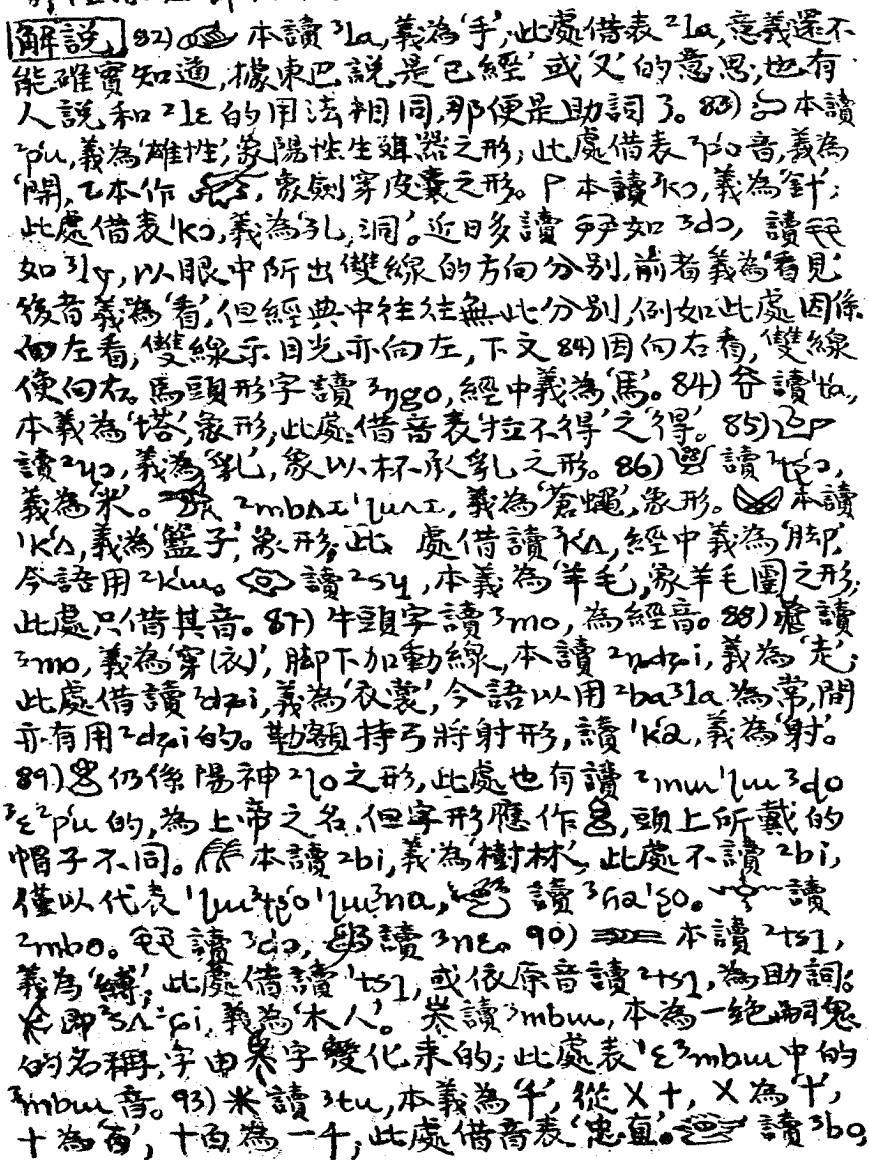 解説 82) 本讀³la,義為‘手’,此處借表²la,意義還不
能確實知道,據東巴説是‘已經’或‘又’的意思;也有
人説和²lɛ的用法相同,那便是助詞了。83) 本讀
²p'u,義為‘雄性’,象陽性生殖器之形;此處借表³p'o音,義為
‘開’,乙本作 ,象劍穿皮囊之形。 本讀³ko,義為‘針’;
此處借表¹kɔ,義為‘孔,洞’。近日多讀 如³dɔ, 讀
如³ly,以眼中所出雙線的方向分別,前者義為‘看見’
後者義為‘看’,但經典中往往無此分別,例如此處因係
向左看,雙線示目光亦向左,下文84)因向右看,雙線
便向右。馬頭形字讀³ŋgo,經中義為‘馬’。84) 讀¹ta,
本義為‘塔’,象形;此處借音表‘拉不得’之‘得’。85)
讀 ,義為‘乳’,象以杯承乳之形。86) 讀 ,
義為‘米’。 ²mbʌɪ ,義為‘蒼蠅’,象形。 本讀
¹k'ʌ,義為‘籃子’,象形;此 處借讀³k'ʌ,經中義為‘脚’,
今語用²k'ɯ。 讀²sɿ,本義為‘羊毛’,象羊毛團之形;
此處只借其音。87) 牛頭字讀³mo,為經音。88) 讀
³mo,義為‘穿(衣)’,脚下加動線,本讀²ndʑi,義為‘走’;
此處借讀²dʑi,義為‘衣裳’,今語以用²ba³la為常,間
亦有用²dʑi的。勒額持弓將射形,讀¹k'a,義為‘射’。
89) 仍係陽神 之形,此處也有讀²mɯ¹lɯ³do
³ɛ²p'u的,為上帝之名,但字形應作 ,頭上所戴的
帽子不同。 本讀²bi,義為‘樹林’,此處不讀²bi,
僅以代表 , 讀 。 讀
²mbo。 讀³dɔ, 讀 。90) 本讀²tsɿ,
義為‘縛’;此處借讀¹tsɿ,或依原音讀²tsɿ,為助詞。
即²sʌ²ɕi,義為‘木人’。 讀³mbɯ,本為一絶嗣鬼
的名稱,字由 字變化來的;此處表¹ɛ³mbɯ中的
³mbɯ音。93) 讀³tu,本義為‘千’,從X十,X為‘十’,
十為‘百’,十百為一千;此處借音表‘忠直’。 讀³bo,